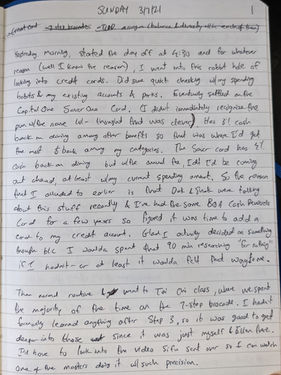 SUNDAY 3/7/21 1
Yesterday morning, started the day off at 4:30 and for whatever
reason (well I know the reason), I went into this rabbit hole of
looking into credit cards. Did some quick checking w/ my spending
habits & my existing accounts & perks. Eventually settled on the
Capital One Savor One Card. (I didn't immediately recognize the
pun w/ the name lol - thought that was clever) Has 3% cash
back on dining among other benefits so that was where I'd get
the most $ back among my categories. The Savor card has 4%
cash back on dining but w/ the annual fee, I didn't think I'd be coming
out ahead, at least w/ my current spending amount. So the reason
that I alluded to earlier is that & were talking
about this stuff recently & I've had the same BofA Cash Rewards
Card for a few years so figured it was time to add a
card to my credit account. Glad I actually decided on something
though b/c I woulda spent that 90 min researching "for nothing"
if I hadn't - or at least it woulda felt that way for me.
Then normal routine & went to Tai Chi class, where we spent
the majority of the time on the 7-step brocade. I hadn't
formally learned anything after Step 3, so it was good to get
deeper into those since it was just myself &
I'll have to look into the video Sifu sent over so I can watch
one of the masters doing it w/ such precision.